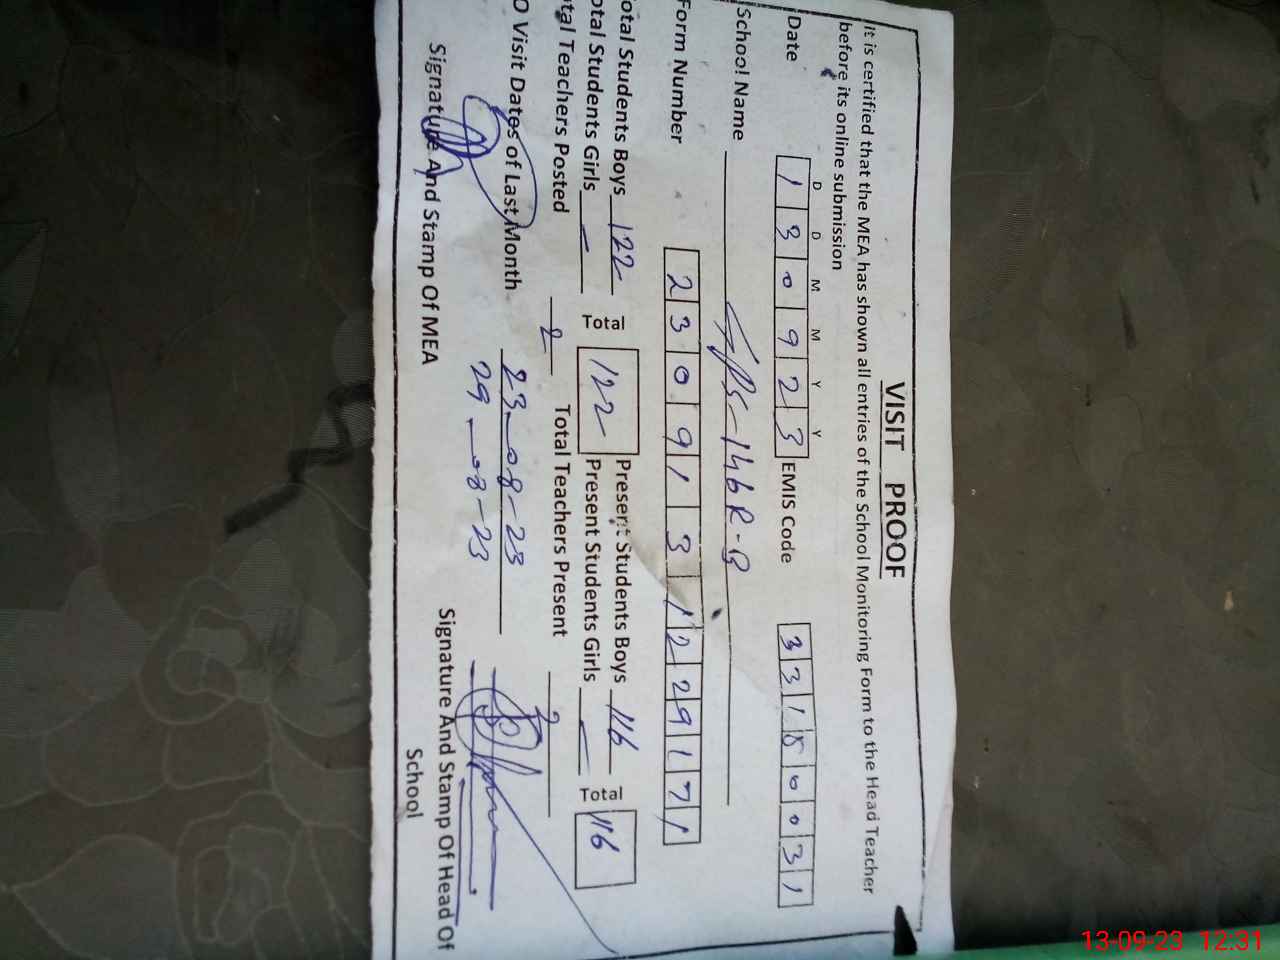 VISIT PROOF
It is certified that the MEA has shown all entries of the School Monitoring Form to the Head Teacher
before its online submission
D D M M Y Y
Date 1 3 0 9 2 3 EMIS Code 3 3 1 8 0 0 3 1
School Name GPS-146R-B
Form Number 2 3 0 9 1 3 1 2 2 9 1 7 1
otal Students Boys 122 Total 122 Present Students Boys 116 Total 116
otal Students Girls — Present Students Girls —
tal Teachers Posted 2 Total Teachers Present 2
O Visit Dates of Last Month 23-08-23
29-08-23
Signature And Stamp Of MEA Signature And Stamp Of Head Of
School
13-09-23 12:31